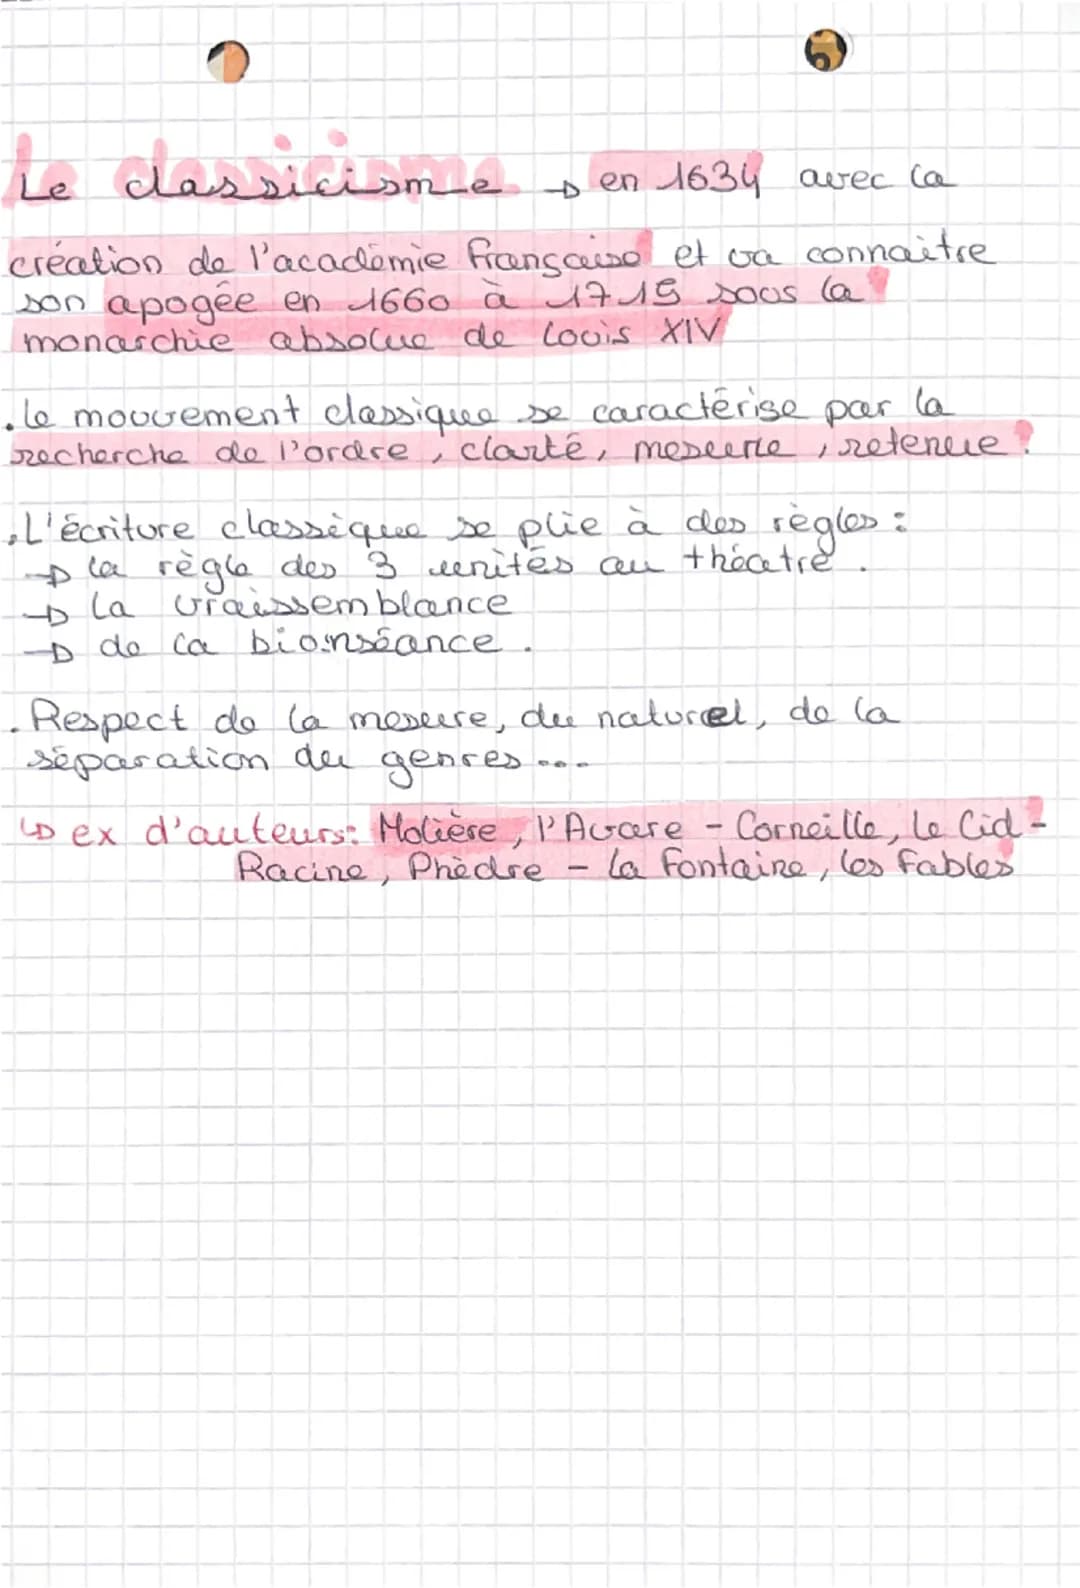 Le classicisme → en 1634 avec la
création de l'académie française et va connaitre
son apogée en 1660 à 1715 sous la
monarchie absolue de Louis XIV
. Le mouvement classique se caractérise par la
recherche de l'ordre, clarté, mesure, retenue.
. L'écriture classique se plie à des règles :
→ la règle des 3 unités au théatre.
→ la vraissemblance
→ de la bienséance.
. Respect de la mesure, du naturel, de la
séparation du genres ...
↳ ex d'auteurs: Molière, l'Avare - Corneille, Le Cid -
Racine, Phèdre - La Fontaine, les Fables